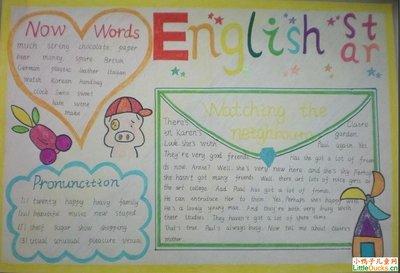 Now Words
much string chocolate paper
beer money spare British
German plastic leather Italian
watch Korean handbag
clock Swiss sweet
hate wine
make
English Star
Pronuncition
[1] twenty happy heavy family
[2] beautiful music new stupid
[3] shelf sugar show shopping
[3] usual unusual pleasure venus
Watching the neighbours
There's Claire
in Karen's garden.
Look she's with Paul again. Yes.
They're very good friends. Has she got a lot of
friends now Anna? Well, she's very new here and she's shy. Perhaps
She hasn't got many friends. Well, there are lots of nice girls at
the art college. And Paul has got a lot of friends.
He can introduce her to them. Yes, Perhaps she's happy with
He's a lovely young man. And they're both very busy with
their studies. They haven't got a lot of spare time.
That's true. Paul's always busy. Now tell me about Claire's
mother.
小鸭子儿童网
LittleDucks.cn